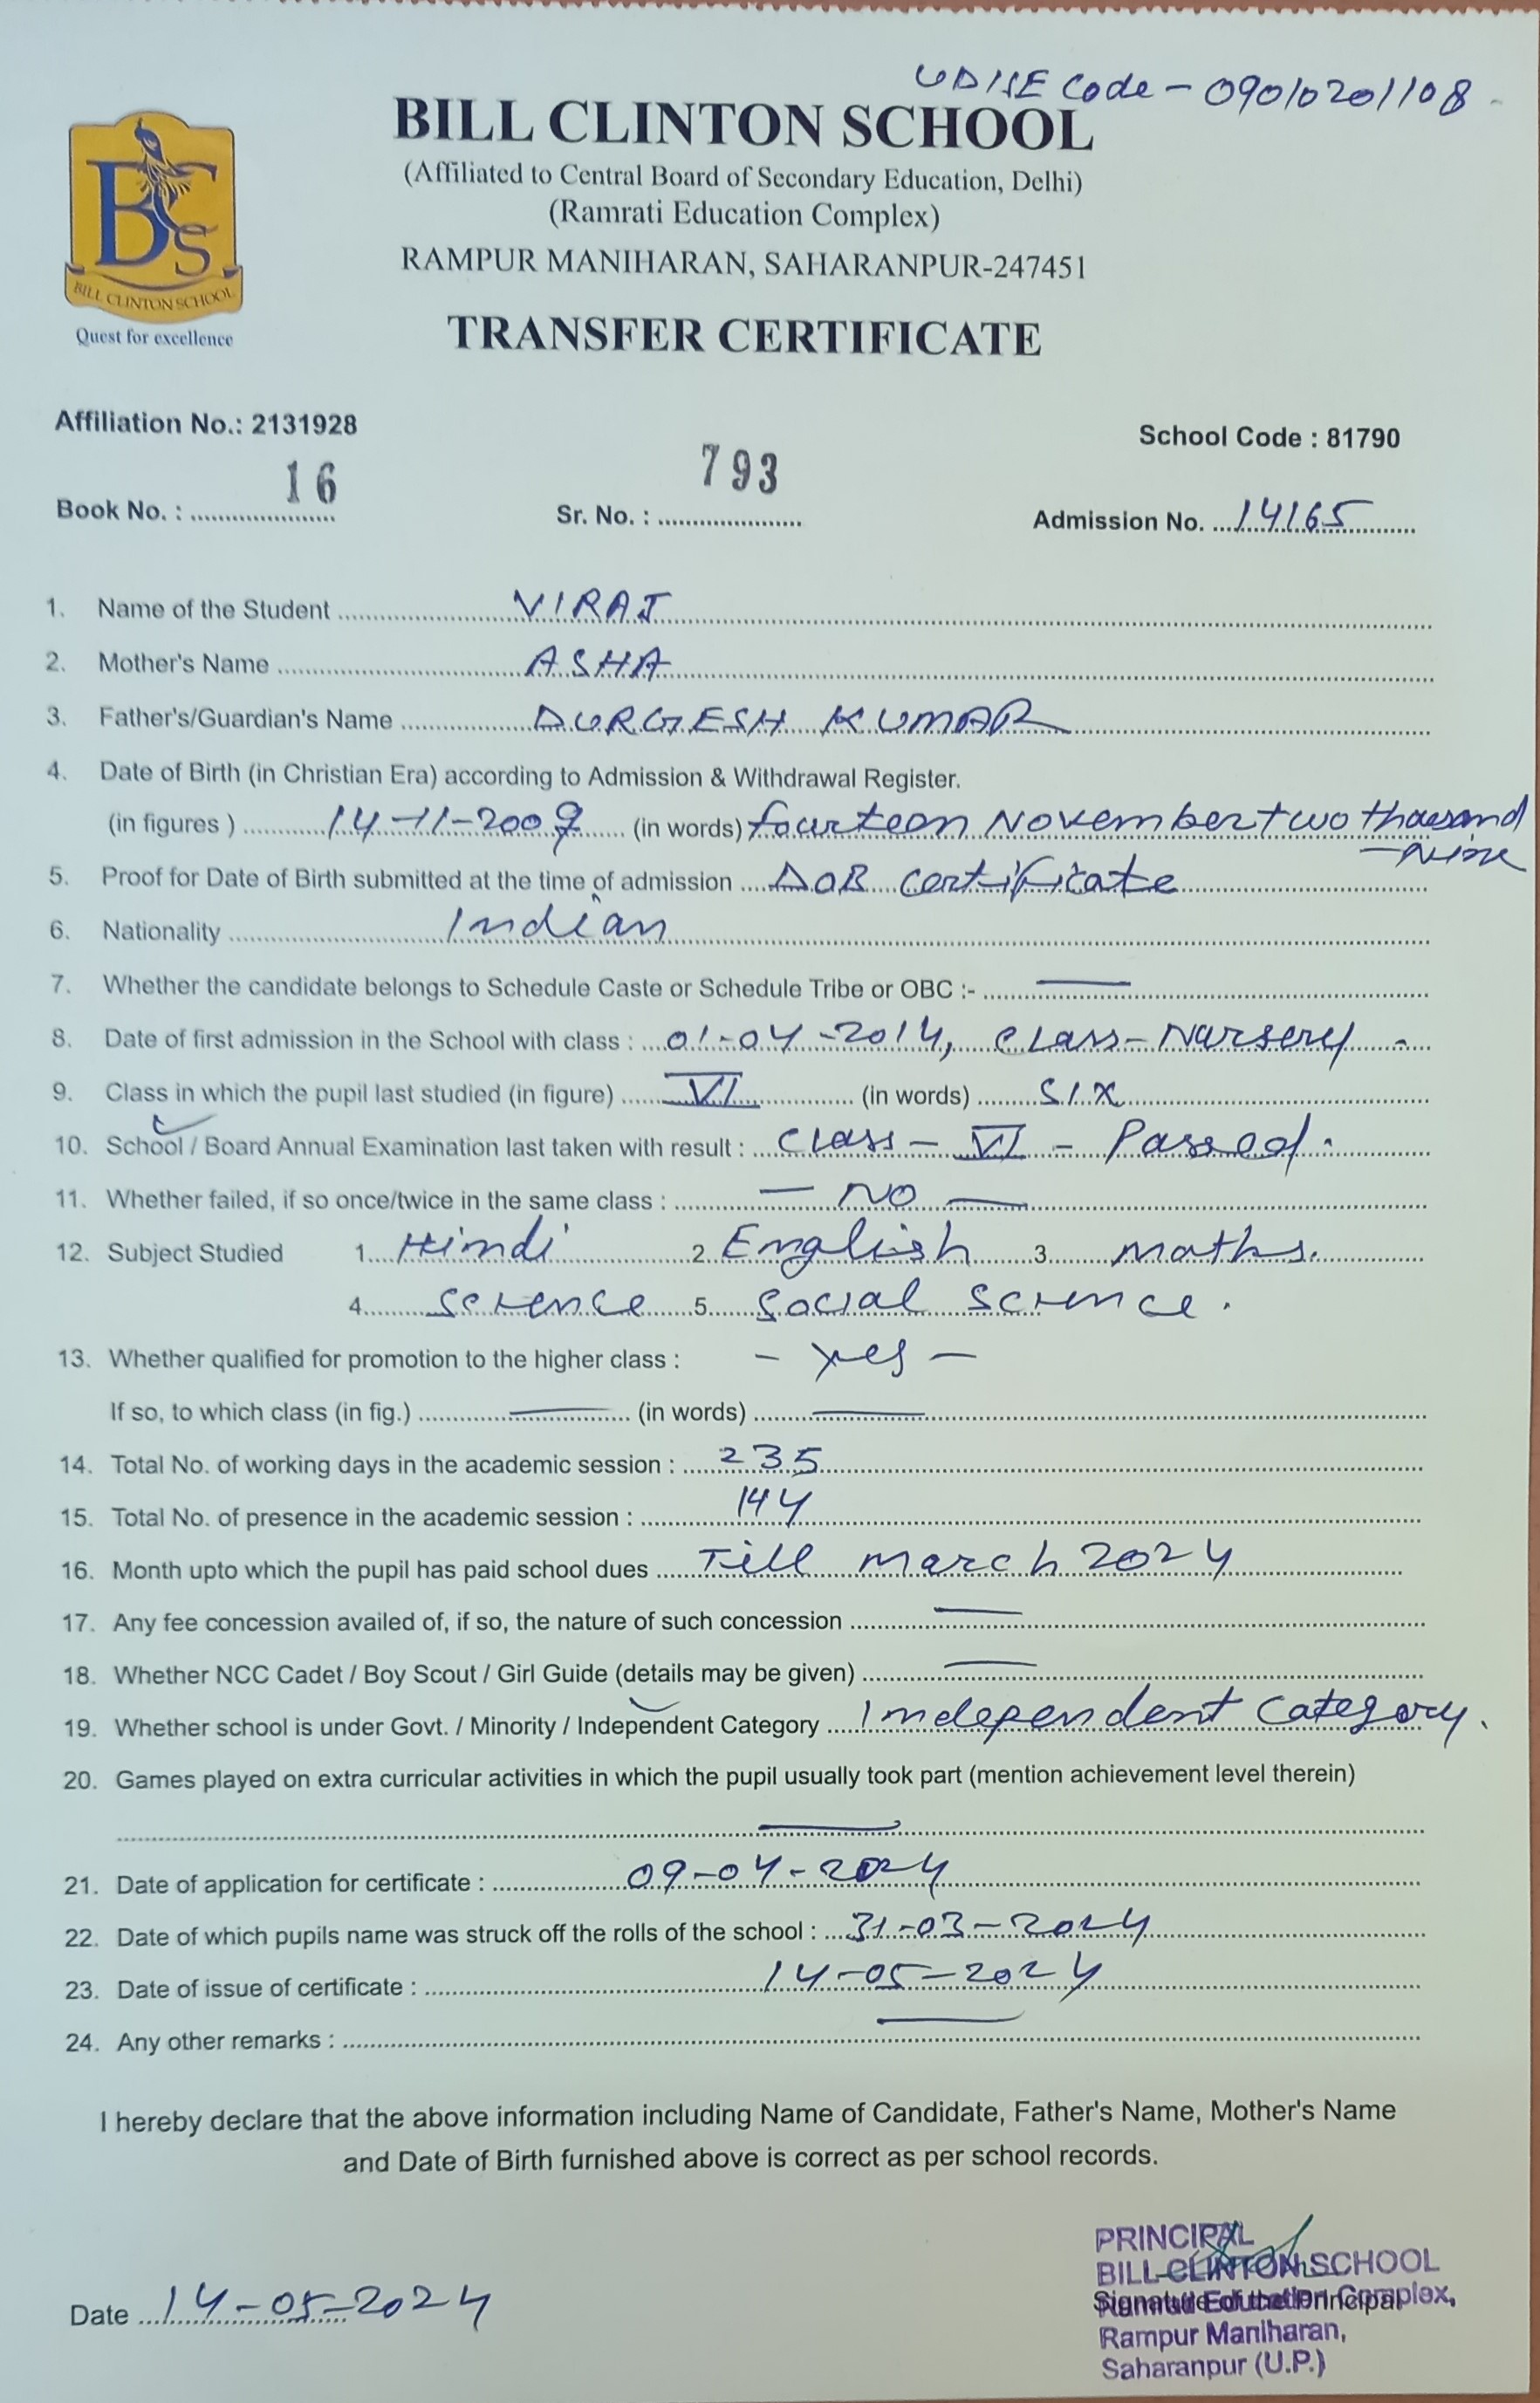 UDISE Code - 09010201108
BILL CLINTON SCHOOL
(Affiliated to Central Board of Secondary Education, Delhi)
(Ramrati Education Complex)
RAMPUR MANIHARAN, SAHARANPUR-247451
BCS
BILL CLINTON SCHOOL
Quest for excellence
TRANSFER CERTIFICATE
Affiliation No.: 2131928 School Code : 81790
Book No. : 16 Sr. No. : 793 Admission No. 14165
1. Name of the Student VIRAJ
2. Mother's Name ASHA
3. Father's/Guardian's Name DURGESH KUMAR
4. Date of Birth (in Christian Era) according to Admission & Withdrawal Register.
(in figures ) 14-11-2009 (in words) fourteen November two thousand
- Nine
5. Proof for Date of Birth submitted at the time of admission DOB certificate
6. Nationality Indian
7. Whether the candidate belongs to Schedule Caste or Schedule Tribe or OBC :- —
8. Date of first admission in the School with class : 01-04-2014, Class- Nursery
9. Class in which the pupil last studied (in figure) VI (in words) SIX
10. School / Board Annual Examination last taken with result : Class - VI - Passed.
11. Whether failed, if so once/twice in the same class : — NO —
12. Subject Studied 1. Hindi 2. English 3. maths.
4. science 5. social science.
13. Whether qualified for promotion to the higher class : - Yes -
If so, to which class (in fig.) — (in words) —
14. Total No. of working days in the academic session : 235
15. Total No. of presence in the academic session : 144
16. Month upto which the pupil has paid school dues Till march 2024
17. Any fee concession availed of, if so, the nature of such concession —
18. Whether NCC Cadet / Boy Scout / Girl Guide (details may be given) —
19. Whether school is under Govt. / Minority / Independent Category Independent Category.
20. Games played on extra curricular activities in which the pupil usually took part (mention achievement level therein)
—
21. Date of application for certificate : 09-04-2024
22. Date of which pupils name was struck off the rolls of the school : 31-03-2024
23. Date of issue of certificate : 14-05-2024
24. Any other remarks : —
I hereby declare that the above information including Name of Candidate, Father's Name, Mother's Name
and Date of Birth furnished above is correct as per school records.
PRINCIPAL
BILL CLINTON SCHOOL
Signature of the Principal
Ramrati Education Complex,
Rampur Maniharan,
Saharanpur (U.P.)
Date 14-05-2024